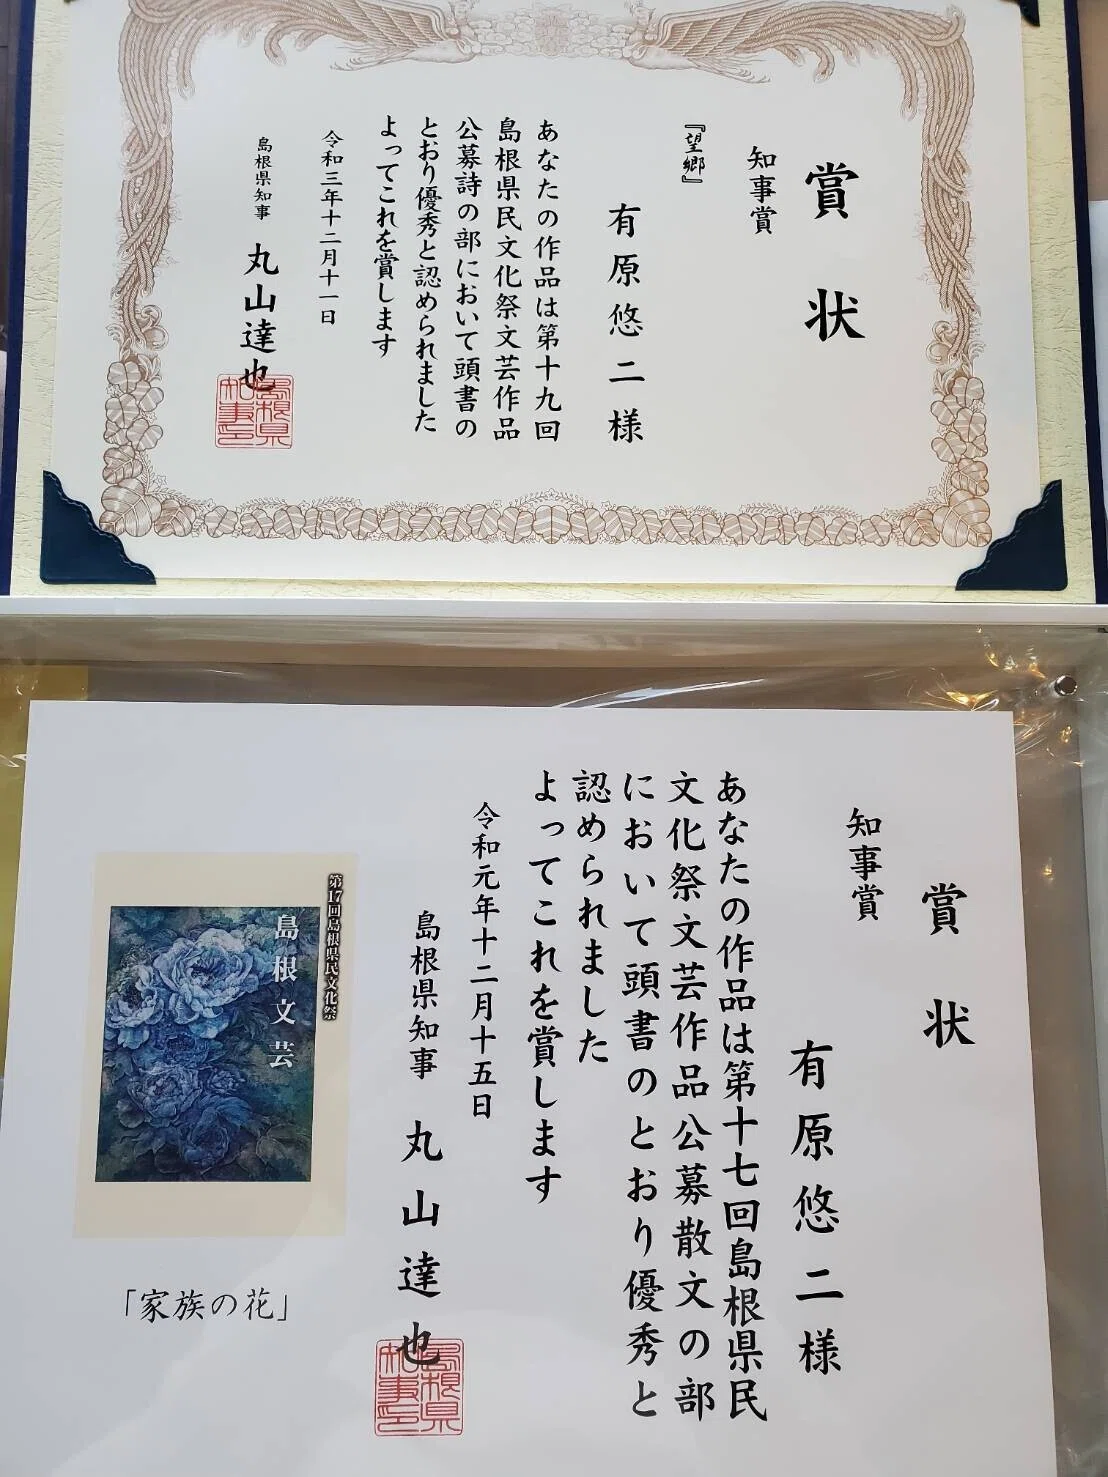 賞状
知事賞
『望郷』
有原悠二様
あなたの作品は第十九回
島根県民文化祭文芸作品
公募詩の部において頭書の
とおり優秀と認められました
よってこれを賞します
令和三年十二月十一日
島根県知事 丸山達也
島根県
知事印
賞状
知事賞
有原悠二様
あなたの作品は第十七回島根県民
文化祭文芸作品公募散文の部
において頭書のとおり優秀と
認められました
よってこれを賞します
令和元年十二月十五日
島根県知事 丸山達也
島根県
知事印
第17回島根県民文化祭
島根文芸
「家族の花」